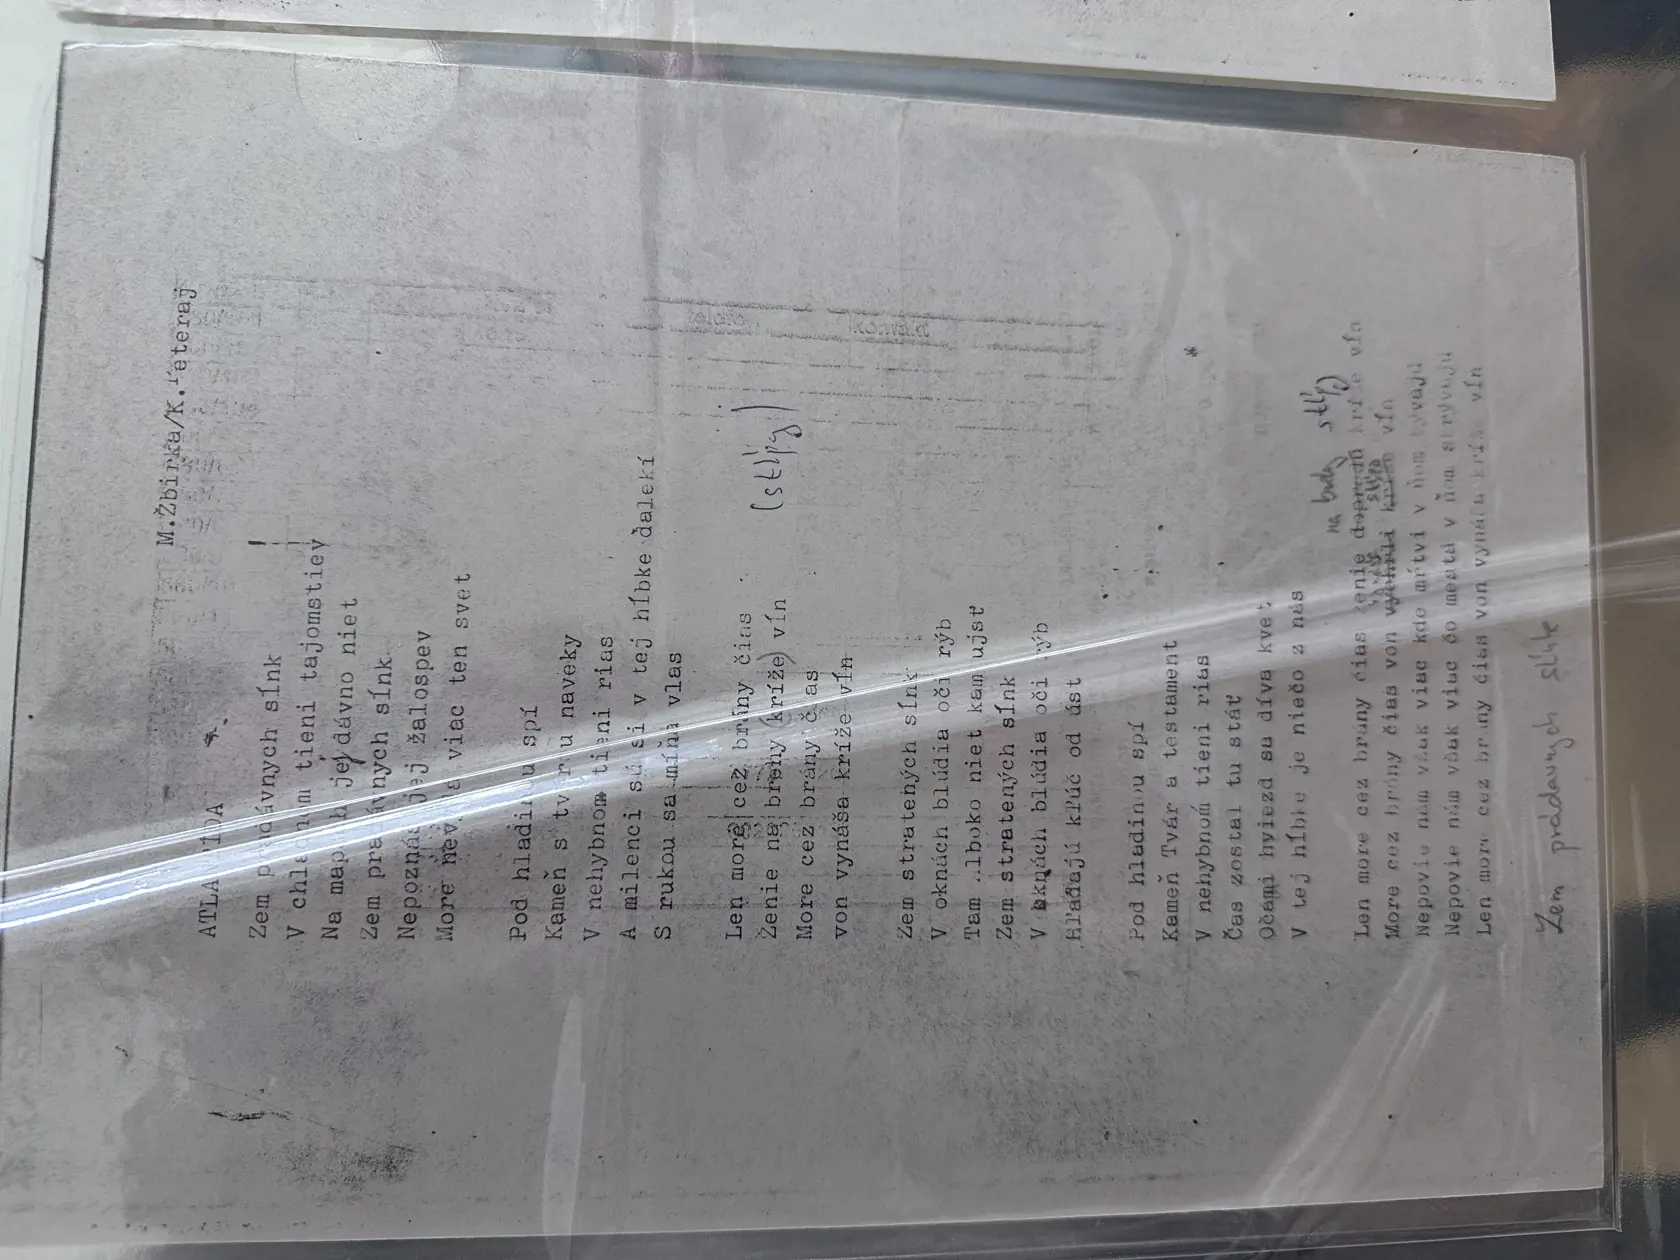 M.Žbirka/K.Peteraj
ATLANTÍDA
Zem pradávnych sĺnk
V chladnom tieni tajomstiev
Na mapách jej dávno niet
Zem pradávnych sĺnk
Nepoznáš jej žalospev
More viac ten svet
Pod hladinou spí
Kameň s tvárou naveky
V nehybnom tieni rias
A milenci sú si v tej hĺbke ďalekí
S rukou sa míňa vlas
Len more cez brány čias
Ženie na brehy (kríže) vĺn (stĺpy)
More cez brány čias
von vynáša kríže vĺn
Zem stratených sĺnk
V oknách blúdia oči rýb
Tam hlboko niet kam ujsť
Zem stratených sĺnk
V oknách blúdia oči rýb
Hľadajú kľúč od úst
Pod hladinou spí
Kameň Tvár a testament
V nehybnom tieni rias
Čas zostal tu stáť
Očami hviezd sa díva kvet
V tej hĺbke je niečo z nás
na brehy stĺpy
Len more cez brány čias ženie dopredu kríže vĺn
stĺpy
More cez brány čias von kríže vĺn
Nepovie nám však viac kdo mŕtvi v ňom bývajú
Nepovie nám však viac čo mestá v ňom skrývajú
Len more cez brány čias von vynáša kríže vĺn
Zem pradávnych sĺnk